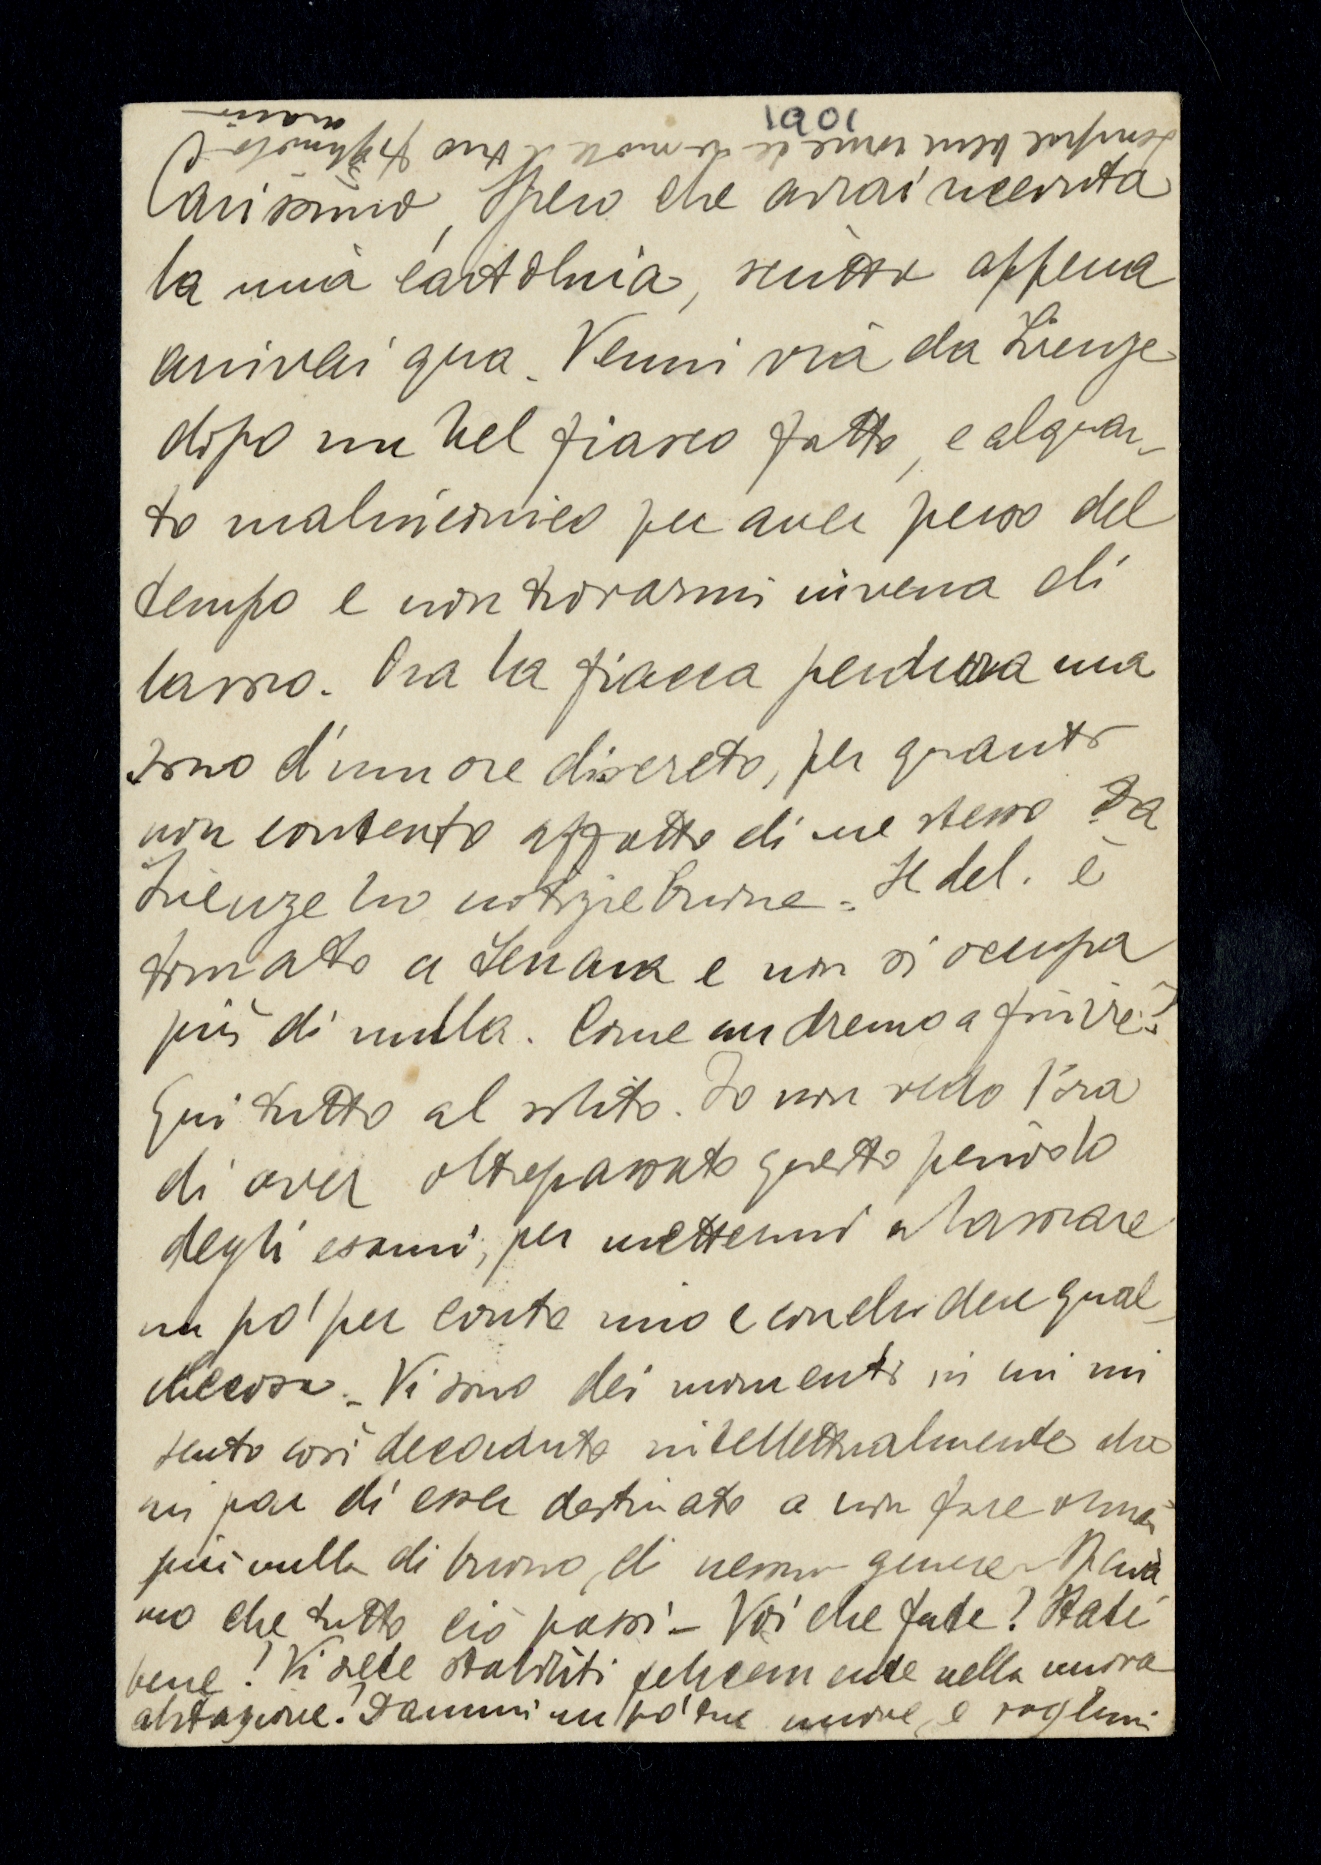 1901
Carissimo, Spero che avrai ricevuta
la mia cartolina, scritta appena
arrivai qua. Venni via da Firenze
dopo un bel fiasco fatto, e alquan-
to malinconico per aver perso del
tempo e non trovarmi in vena di
lavoro. Ora la fiacca perdura ma
sono d'umore discreto, per quanto
non contento affatto di me stesso. Da
Firenze ho notizie buone. Il del. è
tornato a Ferrara e non si occupa
più di nulla. Come andremo a finire?
Qui tutto al solito. Io non vedo l'ora
di aver oltrepassato questo periodo
degli esami, per mettermi a lavorare
un po' per conto mio e conchiudere qual-
checosa. Vi sono dei momenti in cui mi
sento così decaduto intellettualmente che
mi par di esser destinato a non fare ormai
più nulla di buono, di nessun genere. Speria
mo che tutto ciò passi - Voi che fate? State
bene? Vi siete stabiliti felicemente nella nuova
abitazione? Dammi un po' tue nuove, e voglimi
sempre bene come te ne vuole il tuo